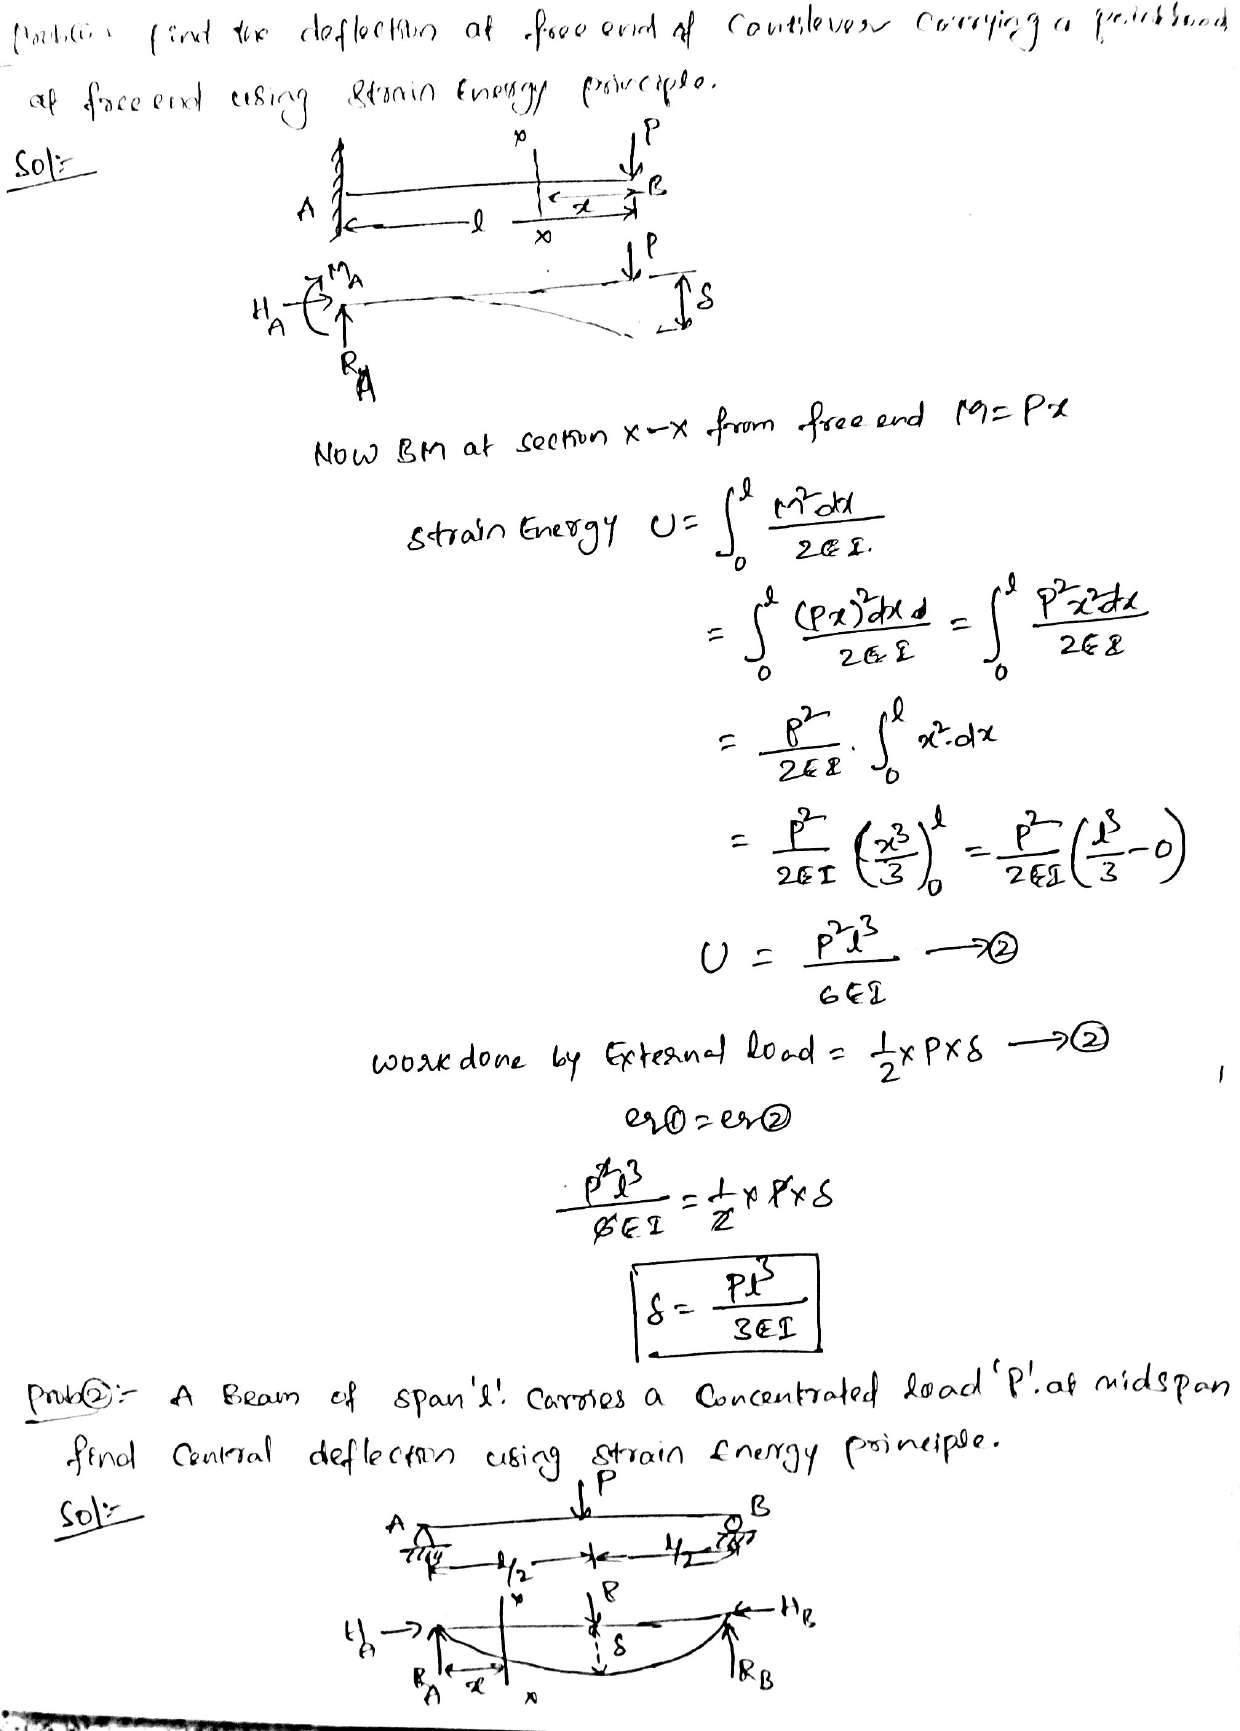 find the deflection at free end of cantilever carrying a
at free end using strain Energy principle.
Sol:-
x P
A l x B
x
P
MA
HA δ
RA
Now BM at section x-x from free end M= Px
strain Energy U= ∫₀ˡ M²dx / 2EI.
= ∫₀ˡ (Px)²dx / 2EI = ∫₀ˡ P²x²dx / 2EI
= P² / 2EI . ∫₀ˡ x².dx
= P² / 2EI (x³/3)₀ˡ = P² / 2EI (l³/3 - 0)
U = P²l³ / 6EI → ②
work done by External load = 1/2 x P x δ → ②
eq① = eq②
P²l³ / 6EI = 1/2 x P x δ
δ = Pl³ / 3EI
prob②:- A Beam of span 'l'. Carries a Concentrated load 'P'. at midspan
find Central deflection using strain Energy principle.
Sol:-
P
A B
l/2 l/2
x P
HA HB
δ
RA x RB
x